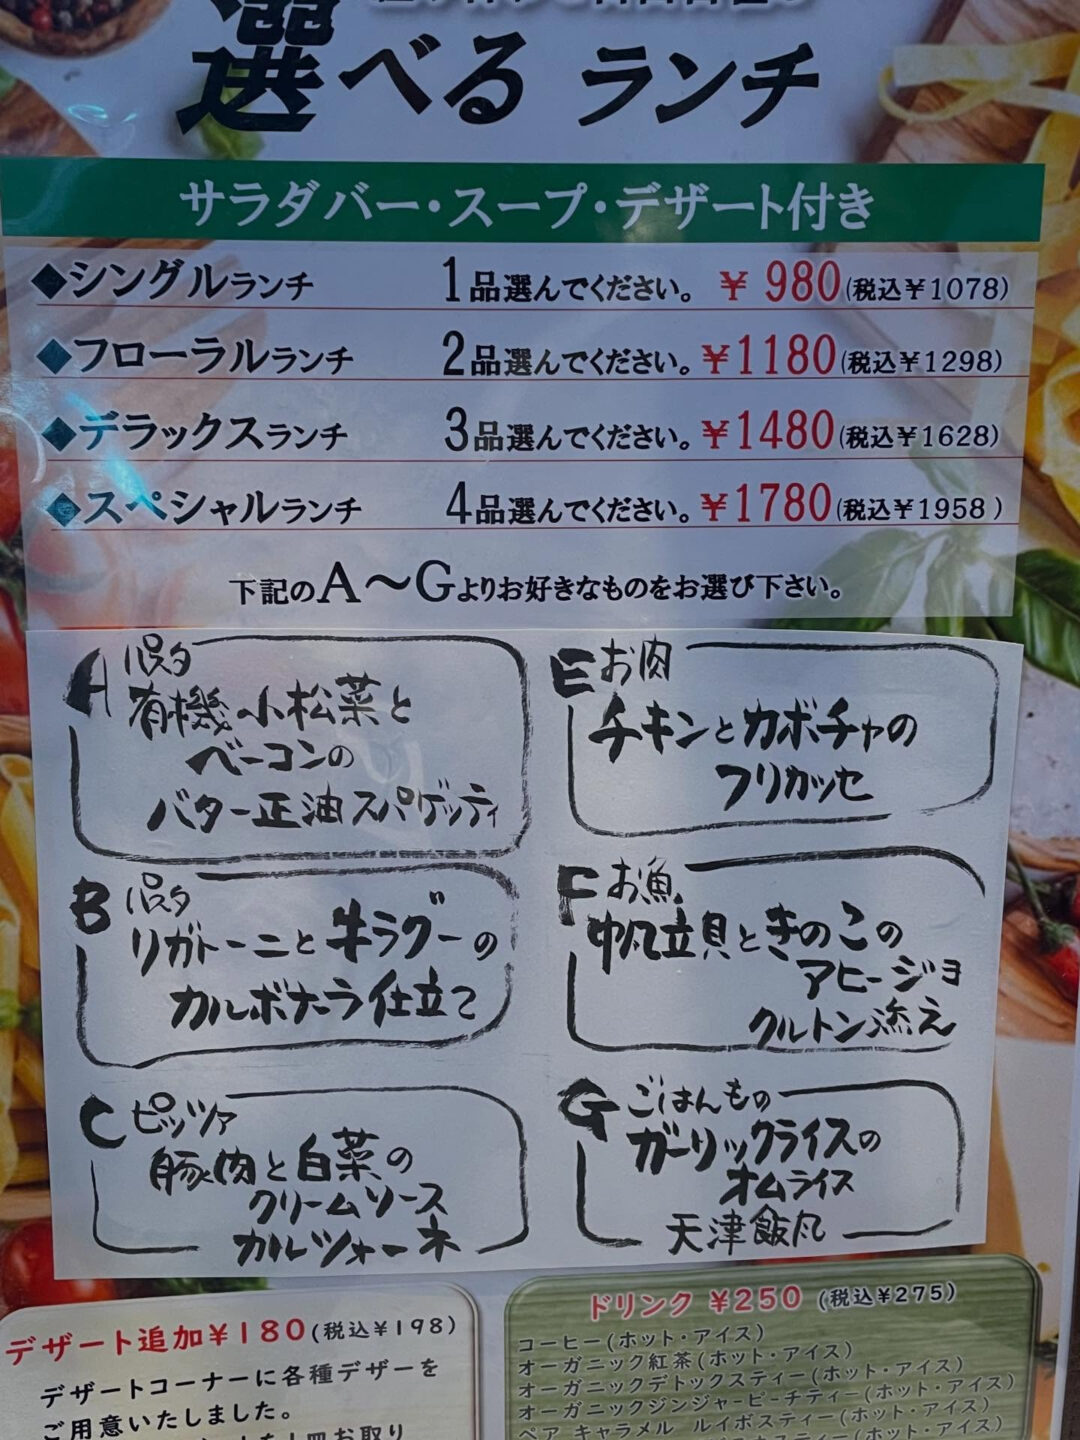 選べるランチ
サラダバー・スープ・デザート付き
◆シングルランチ 1品選んでください。 ￥980(税込￥1078)
◆フローラルランチ 2品選んでください。 ￥1180(税込￥1298)
◆デラックスランチ 3品選んでください。 ￥1480(税込￥1628)
◆スペシャルランチ 4品選んでください。 ￥1780(税込￥1958)
下記のA～Gよりお好きなものをお選び下さい。
A パスタ
有機小松菜と
ベーコンの
バター正油スパゲッティ
B パスタ
リガトーニと牛ラグーの
カルボナーラ仕立て
C ピッツァ
豚肉と白菜の
クリームソース
カルツォーネ
E お肉
チキンとカボチャの
フリカッセ
F お魚
帆立貝ときのこの
アヒージョ
クルトン添え
G ごはんもの
ガーリックライスの
オムライス
天津飯風
デザート追加￥180(税込￥198)
デザートコーナーに各種デザーを
ご用意いたしました。
お取り
ドリンク ￥250 (税込￥275)
コーヒー(ホット・アイス)
オーガニック紅茶(ホット・アイス)
オーガニックデトックスティー(ホット・アイス)
オーガニックジンジャーピーチティー(ホット・アイス)
ペア キャラメル ルイボスティー(ホット・アイス)